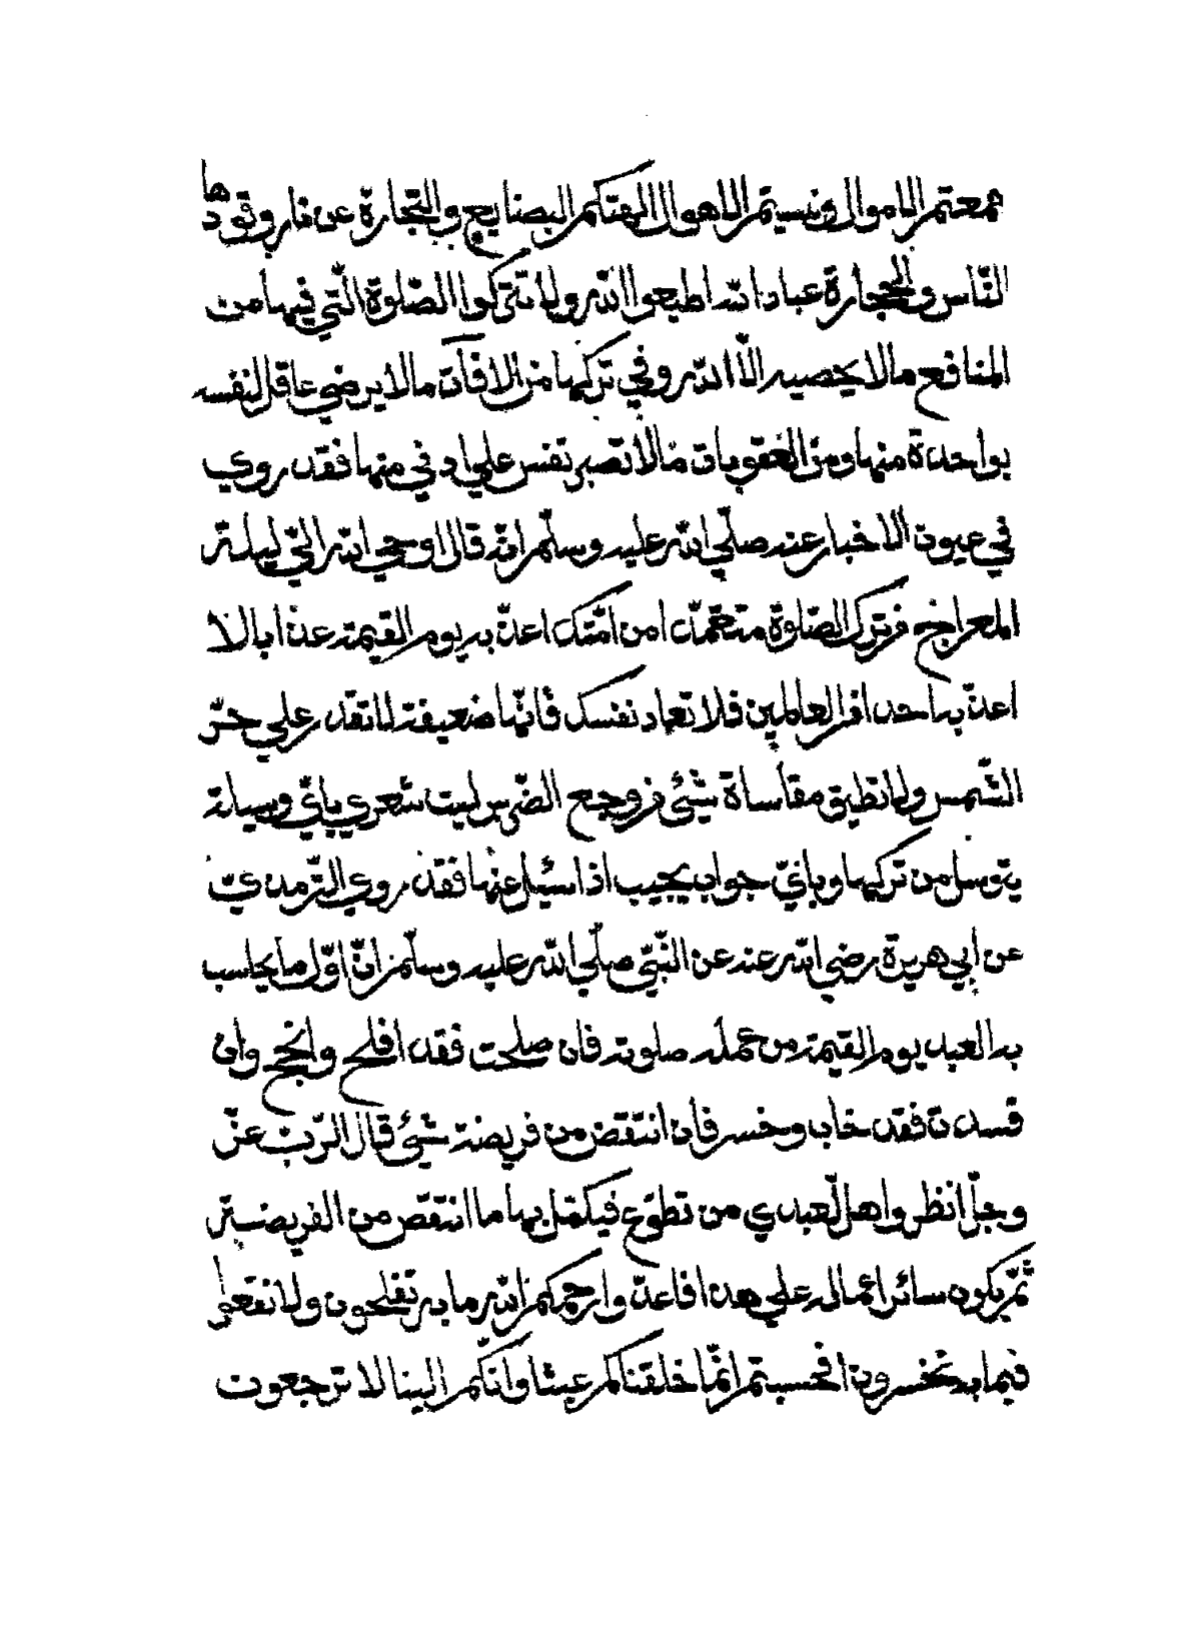 جمعتم الاموال ونسيتم الاهوال الهتكم البضايع والتجارة عن نار وقودها
النّاس والحجارة عباد اللّه اطيعوا اللّه ولا تتركوا الصّلوة الّتي فيها من
المنافع مالا يحصيه الّا اللّه وفي تركها من الآفات مالا يرضي عاقل لنفسه
بواحدة منها ومن العقوبات مالا تصبر نفس علي ادني منها فقد روي
في عيون الاخبار عنه صلّي اللّه عليه وسلّم انّه قال اوحي اللّه اليّ ليلة
المعراج من ترك الصّلوة متعمّدا من امّتك اعذّبه يوم القيمة عذابا لا
اعذّبه احدا من العالمين فلا تعاد نفسك فانّها ضعيفة لا تقدر علي حرّ
الشّمس ولا تطيق مقاساة شيئ من وجع الضّرس ليت شعري بايّ وسيلة
يتوسل من تركها وبايّ جواب يجيب اذا سئل عنها فقد روي التّرمذيّ
عن أبي هريرة رضي اللّه عنه عن النّبيّ صلّي اللّه عليه وسلّم انّ اوّل ما يحاسب
به العبد يوم القيمة من عمله صلوته فان صلحت فقد افلح وانجح وان
فسدت فقد خاب وخسر فان انتقص من فريضة شيئ قال الرّبّ عزّ
وجلّ انظروا هل لعبدي من تطوّع فيكمّل بها ما انتقص من الفريضة
ثمّ يكون سائر اعماله علي هذا فاعدّوا رحمكم اللّه ما به تفلحون ولا تقعوا
فيما به تخسرون افحسبتم انّما خلقناكم عبثا وانّكم الينا لا ترجعون